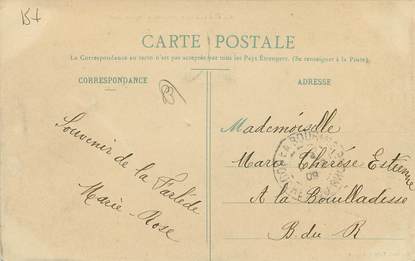 15+
CARTE POSTALE
La Correspondance au recto n'est pas acceptée par tous les Pays Étrangers. (Se renseigner à la Poste).
CORRESPONDANCE
ADRESSE
Souvenir de la Farlède
Marie-Rose
Mademoiselle
Marie Thérèse Estienne
A la Bouilladisse
B. du R
09